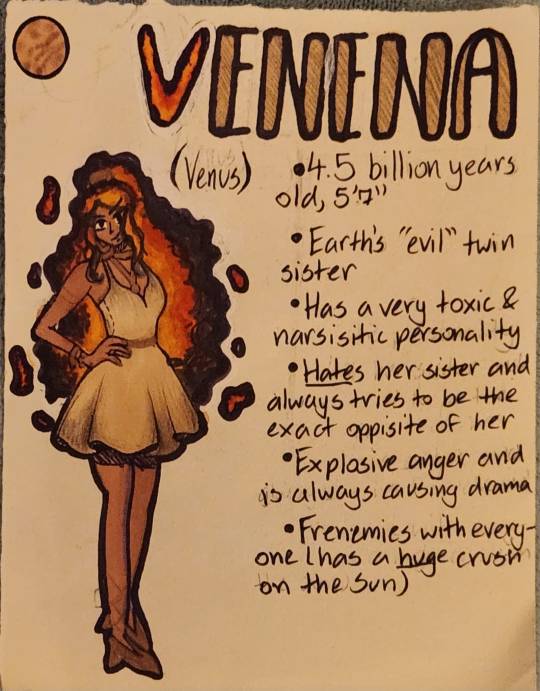 VENENA
(Venus)
•4.5 billion years
old, 5'7"
•Earth's "evil" twin
sister
•Has a very toxic &
narsisitic personality
•Hates her sister and
always tries to be the
exact oppisite of her
•Explosive anger and
is always causing drama
•Frenemies with every-
one (has a huge crush
on the Sun)